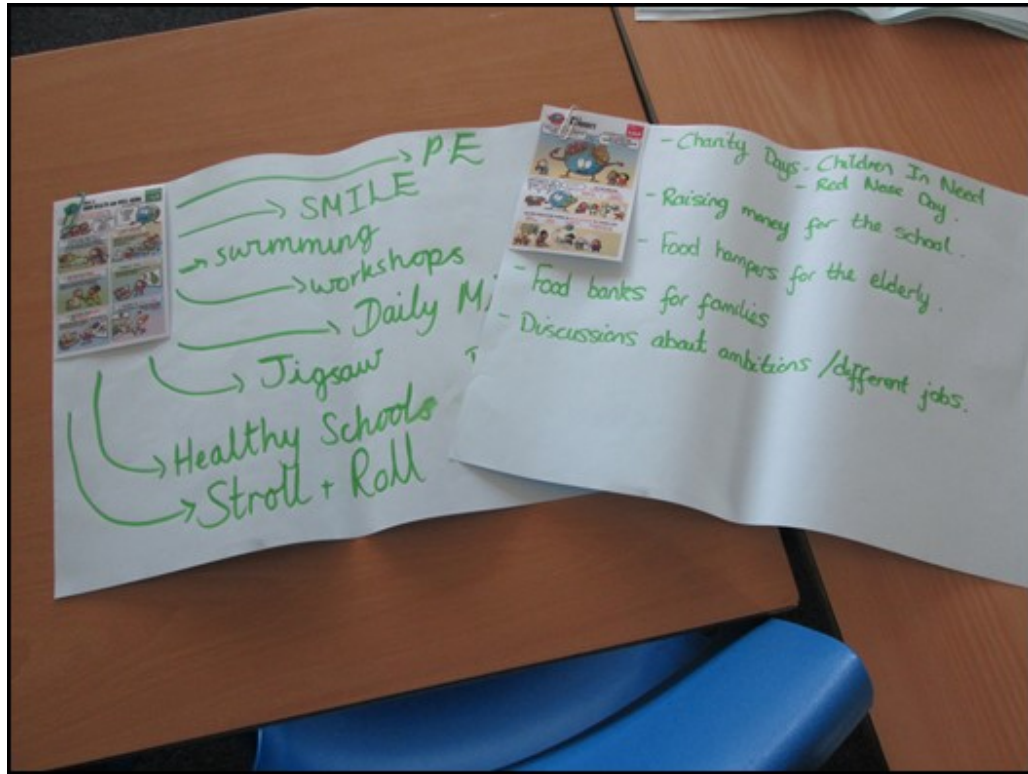 PE
SMILE
swimming
workshops
Daily
Jigsaw
Healthy Schools
Stroll + Roll
- Charity Days - Children In Need
- Red Nose Day.
- Raising money for the school.
- Food hampers for the elderly.
- Food banks for families
- Discussions about ambitions / different jobs.